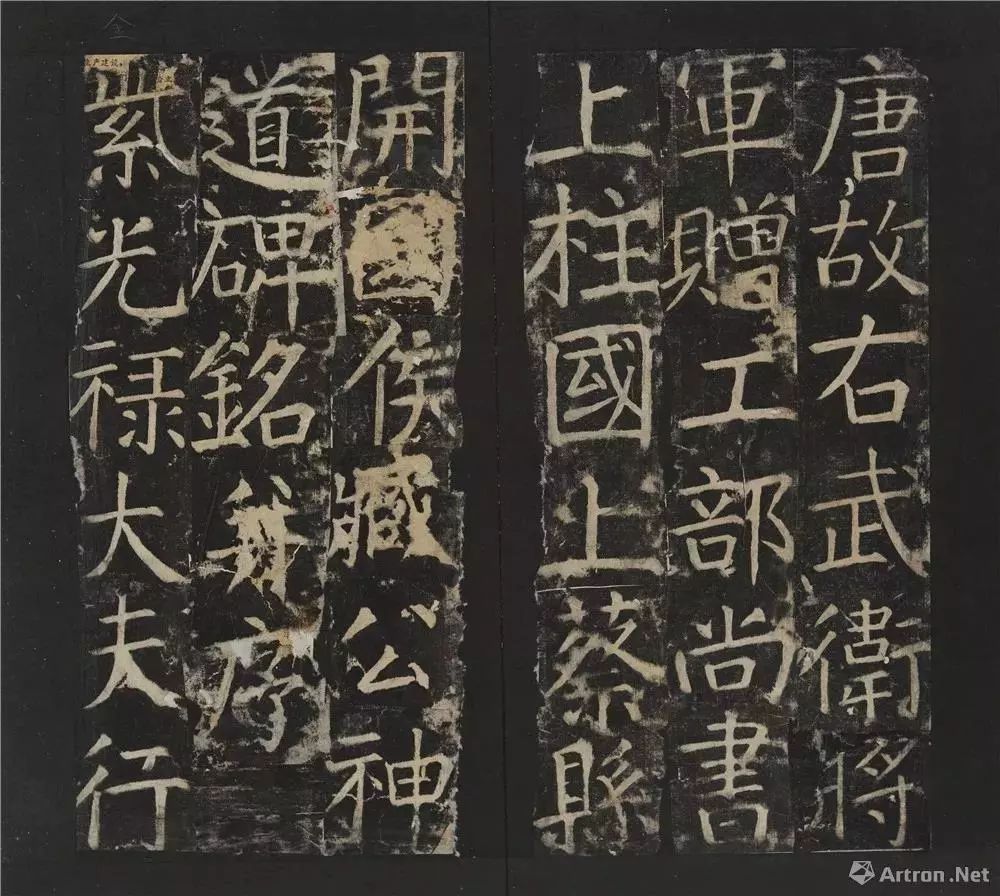 唐故右武衛將
軍贈工部尚書
上柱國上蔡縣
開國侯臧公神
道碑銘并序
紫光禄大夫行
产建设
Artron.Net